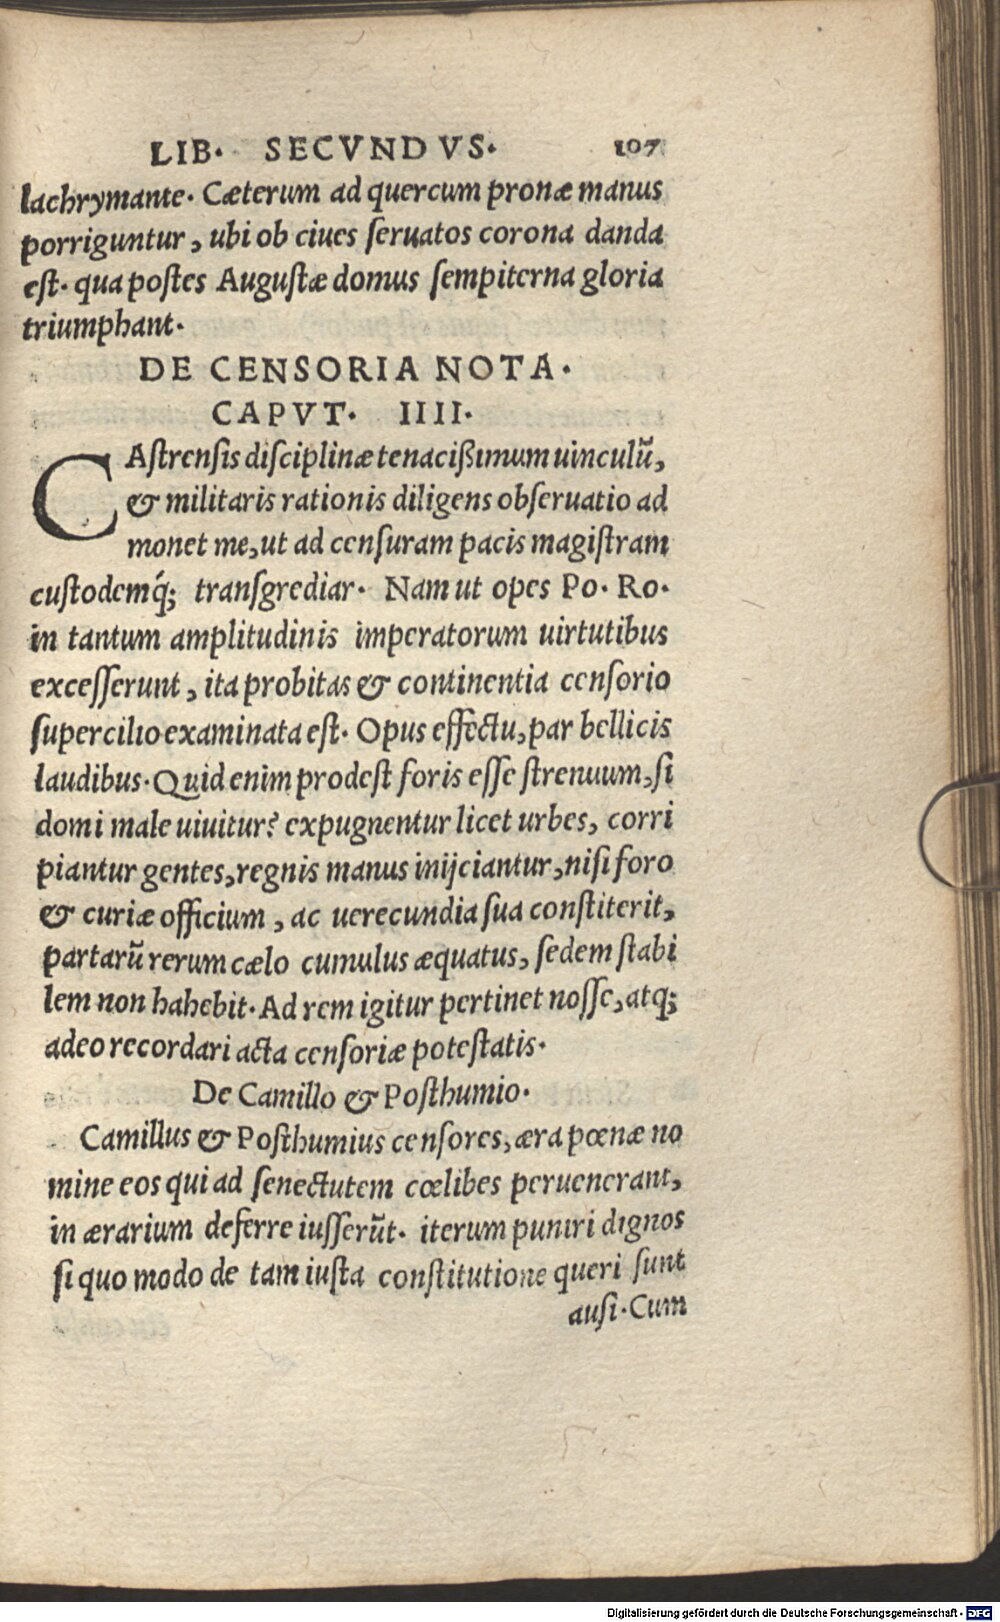 LIB. SECVNDVS. 107
lachrymante. Cæterum ad quercum pronæ manus
porriguntur, ubi ob ciues ſeruatos corona danda
eſt. qua poſtes Auguſtæ domus ſempiterna gloria
triumphant.
DE CENSORIA NOTA.
CAPVT. IIII.
CAſtrenſis diſciplinæ tenacißimum uinculũ,
& militaris rationis diligens obſeruatio ad
monet me, ut ad cenſuram pacis magiſtram
cuſtodemq́; tranſgrediar. Nam ut opes Po. Ro.
in tantum amplitudinis imperatorum uirtutibus
exceſſerunt, ita probitas & continentia cenſorio
ſupercilio examinata eſt. Opus effectu, par bellicis
laudibus. Quid enim prodeſt foris eſſe ſtrenuum, ſi
domi male uiuitur? expugnentur licet urbes, corri
piantur gentes, regnis manus inijciantur, niſi foro
& curiæ officium, ac uerecundia ſua conſtiterit,
partarũ rerum cælo cumulus æquatus, ſedem ſtabi
lem non hahebit. Ad rem igitur pertinet noſſe, atq;
adeo recordari acta cenſoriæ poteſtatis.
De Camillo & Poſthumio.
Camillus & Poſthumius cenſores, æra pœnæ no
mine eos qui ad ſenectutem cœlibes peruenerant,
in ærarium deferre iuſſerũt. iterum puniri dignos
ſi quo modo de tam iuſta conſtitutione queri ſunt
auſi. Cum
Digitalisierung gefördert durch die Deutsche Forschungsgemeinschaft - DFG